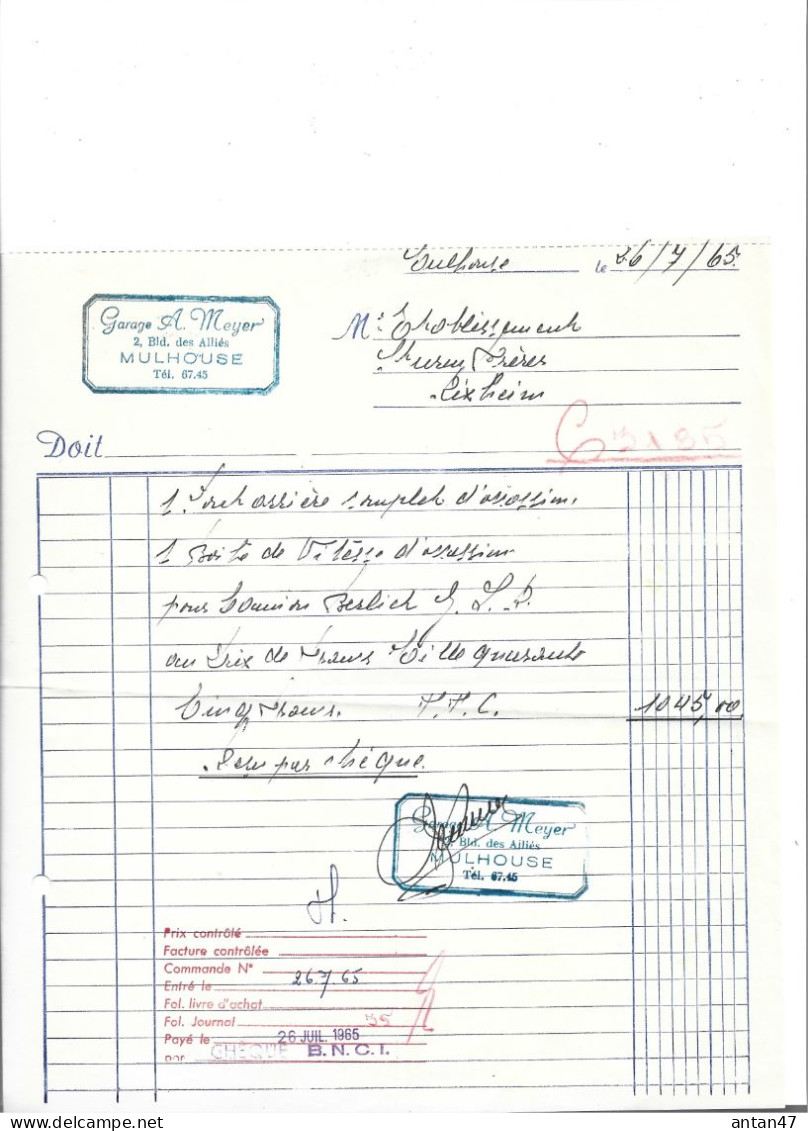 Mulhouse le 26/7/65
Garage A. Meyer
2, Bld. des Alliés
MULHOUSE
Tél. 67.45
M
Frères
Rixheim
Doit
1 arrière complet d'occasion
1 Boite de Vitesse d'occasion
pour Camion Berliet G. L.
au Prix de Francs Mille quarante
Cinq Francs. T.T.C. 1045,00
par chèque
Garage A. Meyer
Bld. des Alliés
MULHOUSE
Tél. 67.45
Prix contrôlé
Facture contrôlée
Commande N°
Entré le 26 7/65
Fol. livre d'achat
Fol. Journal 35
Payé le 26 JUIL. 1965
par CHÈQUE B.N.C.I.
antan47